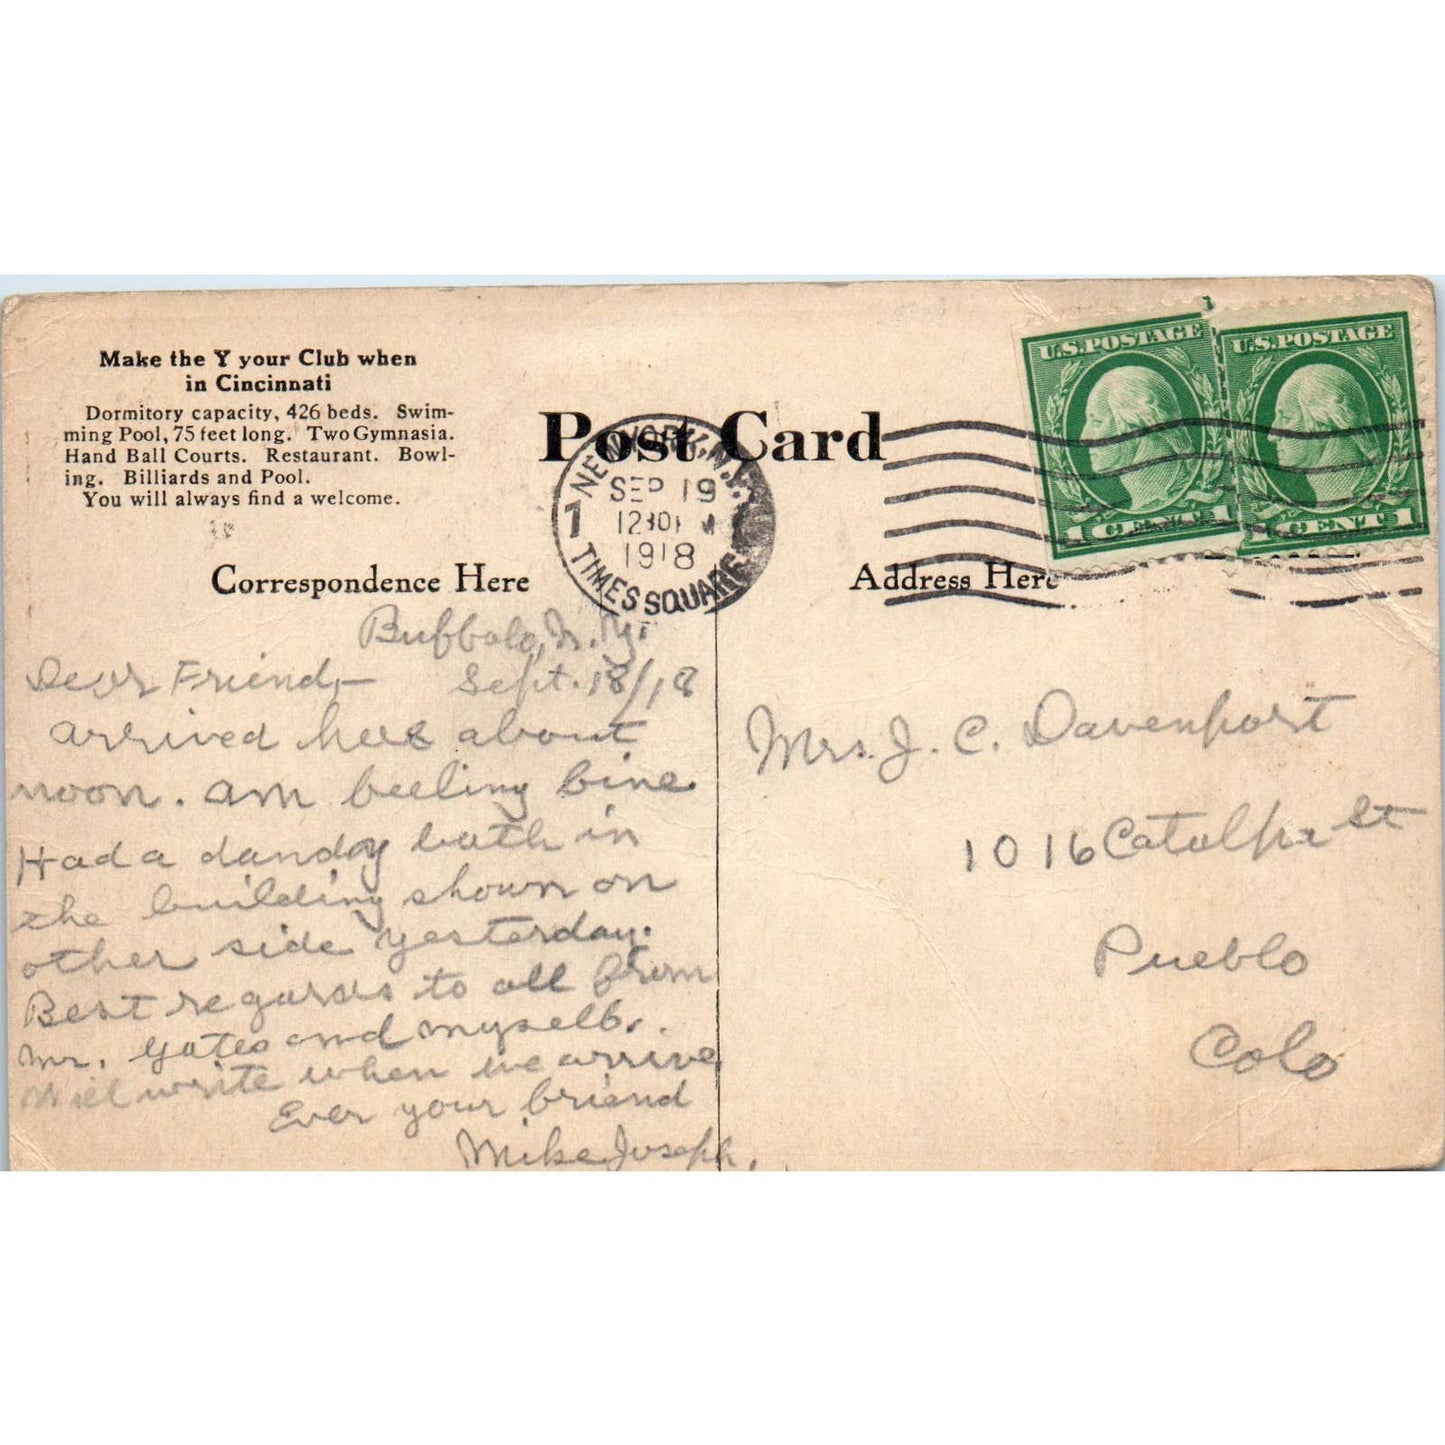 Make the Y your Club when
in Cincinnati
Dormitory capacity, 426 beds. Swim-
ming Pool, 75 feet long. Two Gymnasia.
Hand Ball Courts. Restaurant. Bowl-
ing. Billiards and Pool.
You will always find a welcome.
Post Card
NEW YORK, N.Y.
SEP 19
1918
7
TIMES SQUARE
U.S. POSTAGE
1 CENT 1
U.S. POSTAGE
1 CENT 1
Correspondence Here
Buffalo, N.Y.
Sept. 18/18
Dear Friend,—
Arrived here about
noon. Am feeling fine.
Had a dandy bath in
the building shown on
other side yesterday.
Best regards to all from
Mr. Yates and myself.
Will write when we arrive
Ever your friend
Mike Joseph.
Address Here
Mrs. J. C. Davenport
1016 Catalpa St
Pueblo
Colo